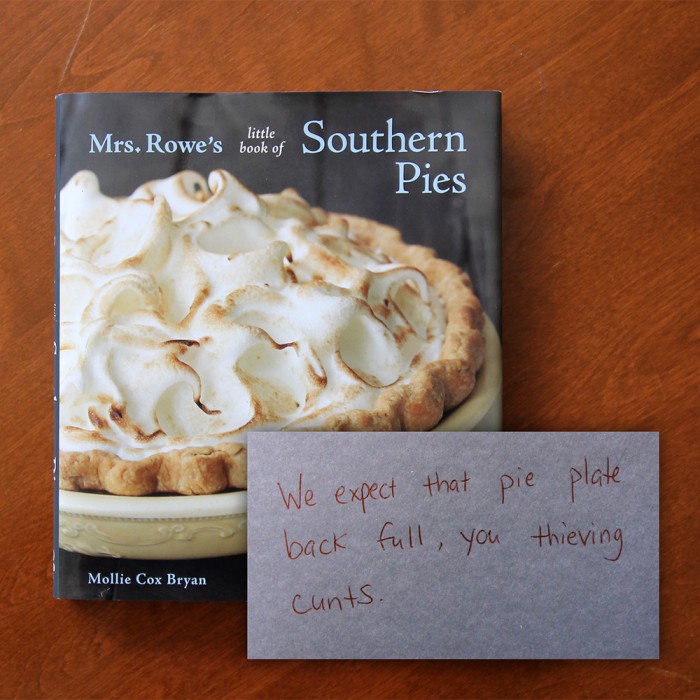 Mrs. Rowe's little book of Southern Pies
Mollie Cox Bryan
We expect that pie plate
back full, you thieving
cunts.